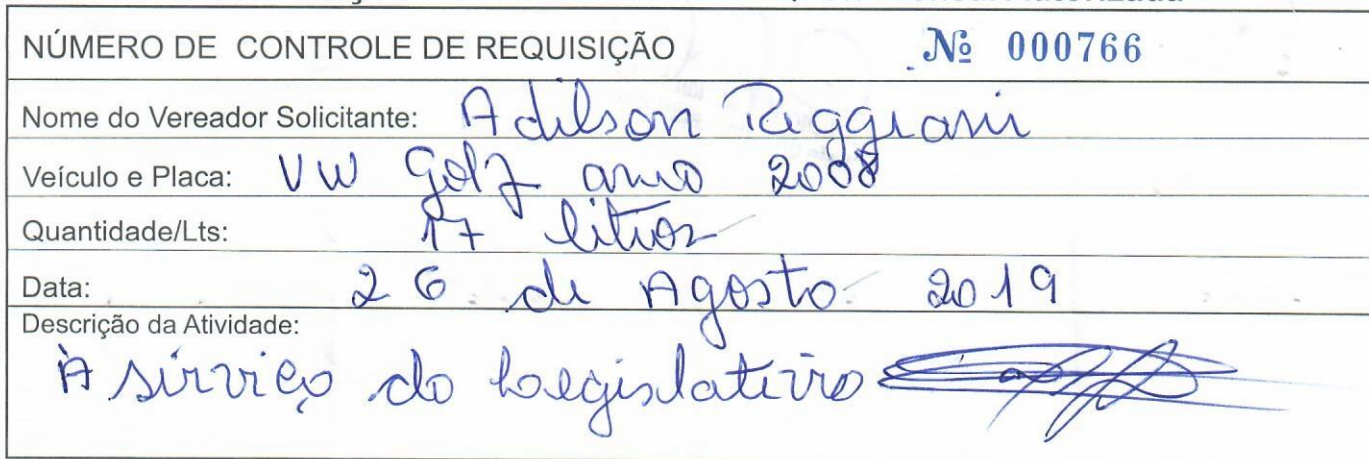 NÚMERO DE CONTROLE DE REQUISIÇÃO Nº 000766
Nome do Vereador Solicitante: Adilson Reggiani
Veículo e Placa: VW Golf ano 2008
Quantidade/Lts: 17 litros
Data: 26 de Agosto 2019
Descrição da Atividade:
À serviço do Legislativo